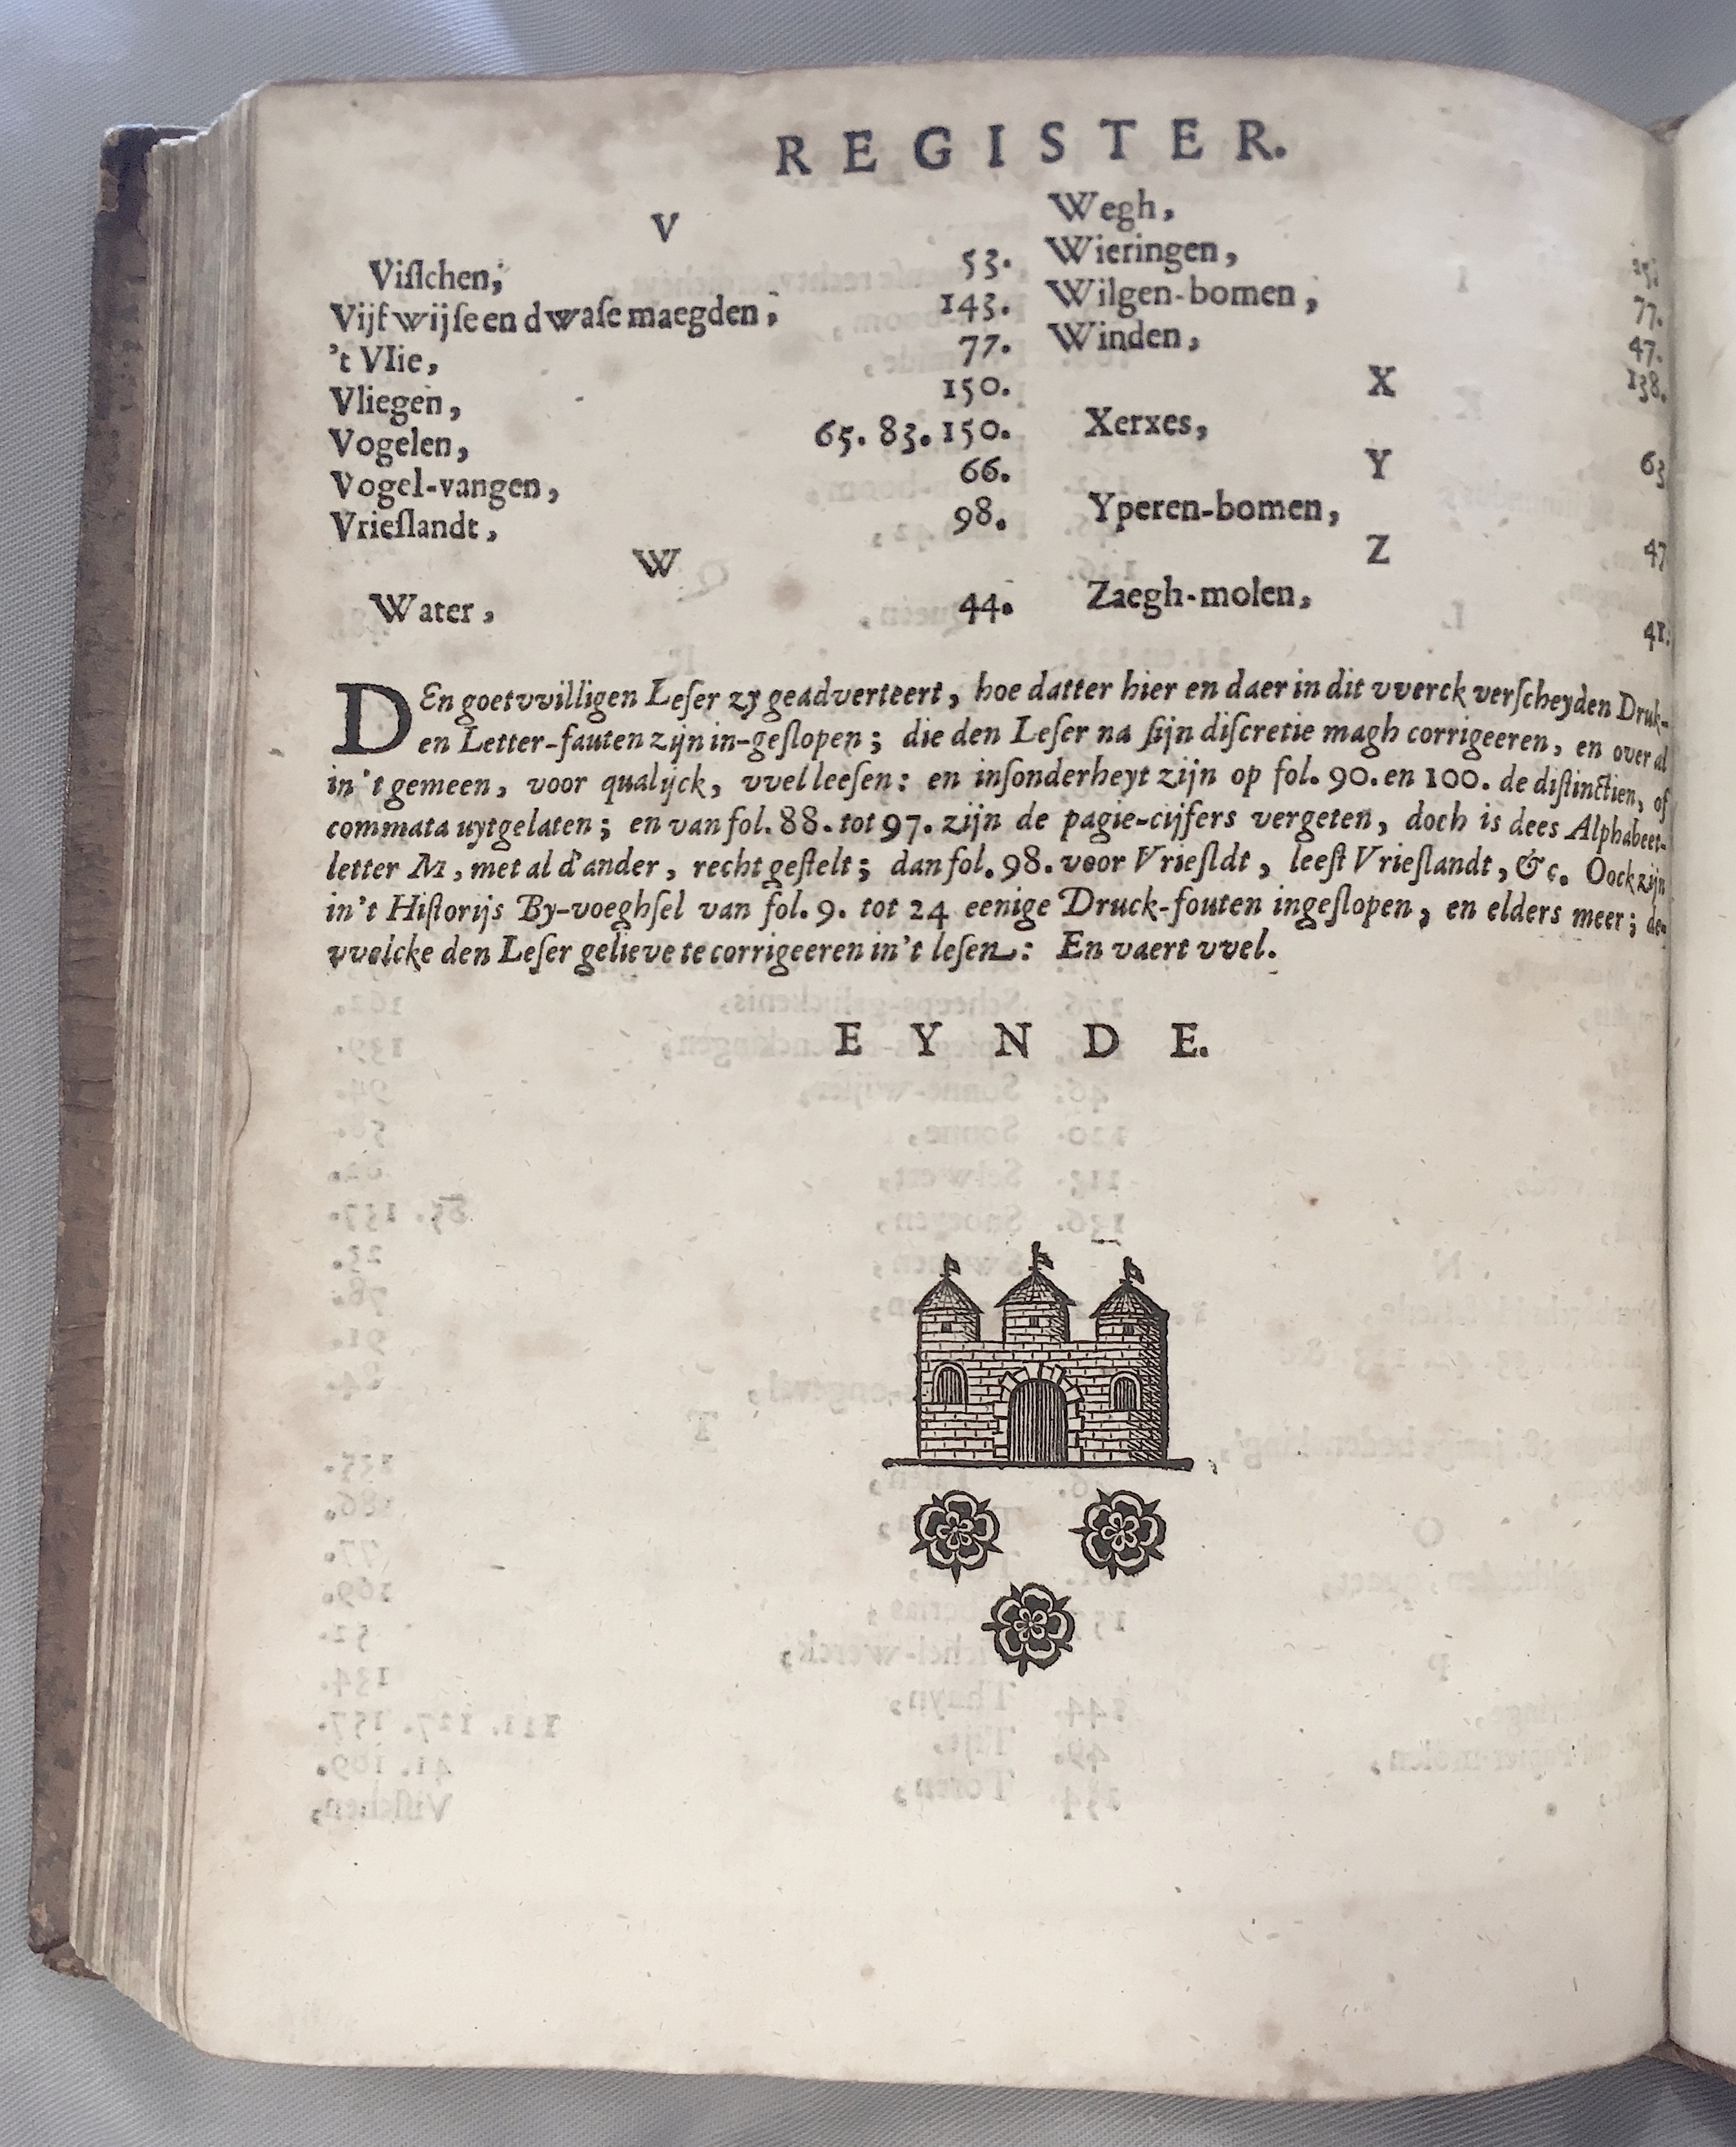 REGISTER.
V
Viſſchen, 53.
Vijf wijſe en dwaſe maegden, 143.
't Vlie, 77.
Vliegen, 150.
Vogelen, 65. 83. 150.
Vogel-vangen, 66.
Vrieſlandt, 98.
W
Water, 44.
Wegh,
Wieringen, 77.
Wilgen-bomen, 47.
Winden, 138.
X
Xerxes, 63
Y
Yperen-bomen, 47
Z
Zaegh-molen, 41.
DEn goetvvilligen Leſer zy geadverteert, hoe datter hier en daer in dit vverck verſcheyden Druk-
en Letter-fauten zijn in-geſlopen; die den Leſer na ſijn diſcretie magh corrigeeren, en over al
in't gemeen, voor qualijck, vvel leeſen: en inſonderheyt zijn op fol. 90. en 100. de diſtinctien, of
commata uytgelaten; en van fol. 88. tot 97. zijn de pagie-cijfers vergeten, doch is dees Alphabeet-
letter M, met al d'ander, recht geſtelt; dan fol. 98. voor Vrieſldt, leeſt Vrieſlandt, &c. Oock zijn
in't Hiſtorijs By-voeghſel van fol. 9. tot 24 eenige Druck-fouten ingeſlopen, en elders meer; de-
vvelcke den Leſer gelieve te corrigeeren in't leſen: En vaert vvel.
EYNDE.